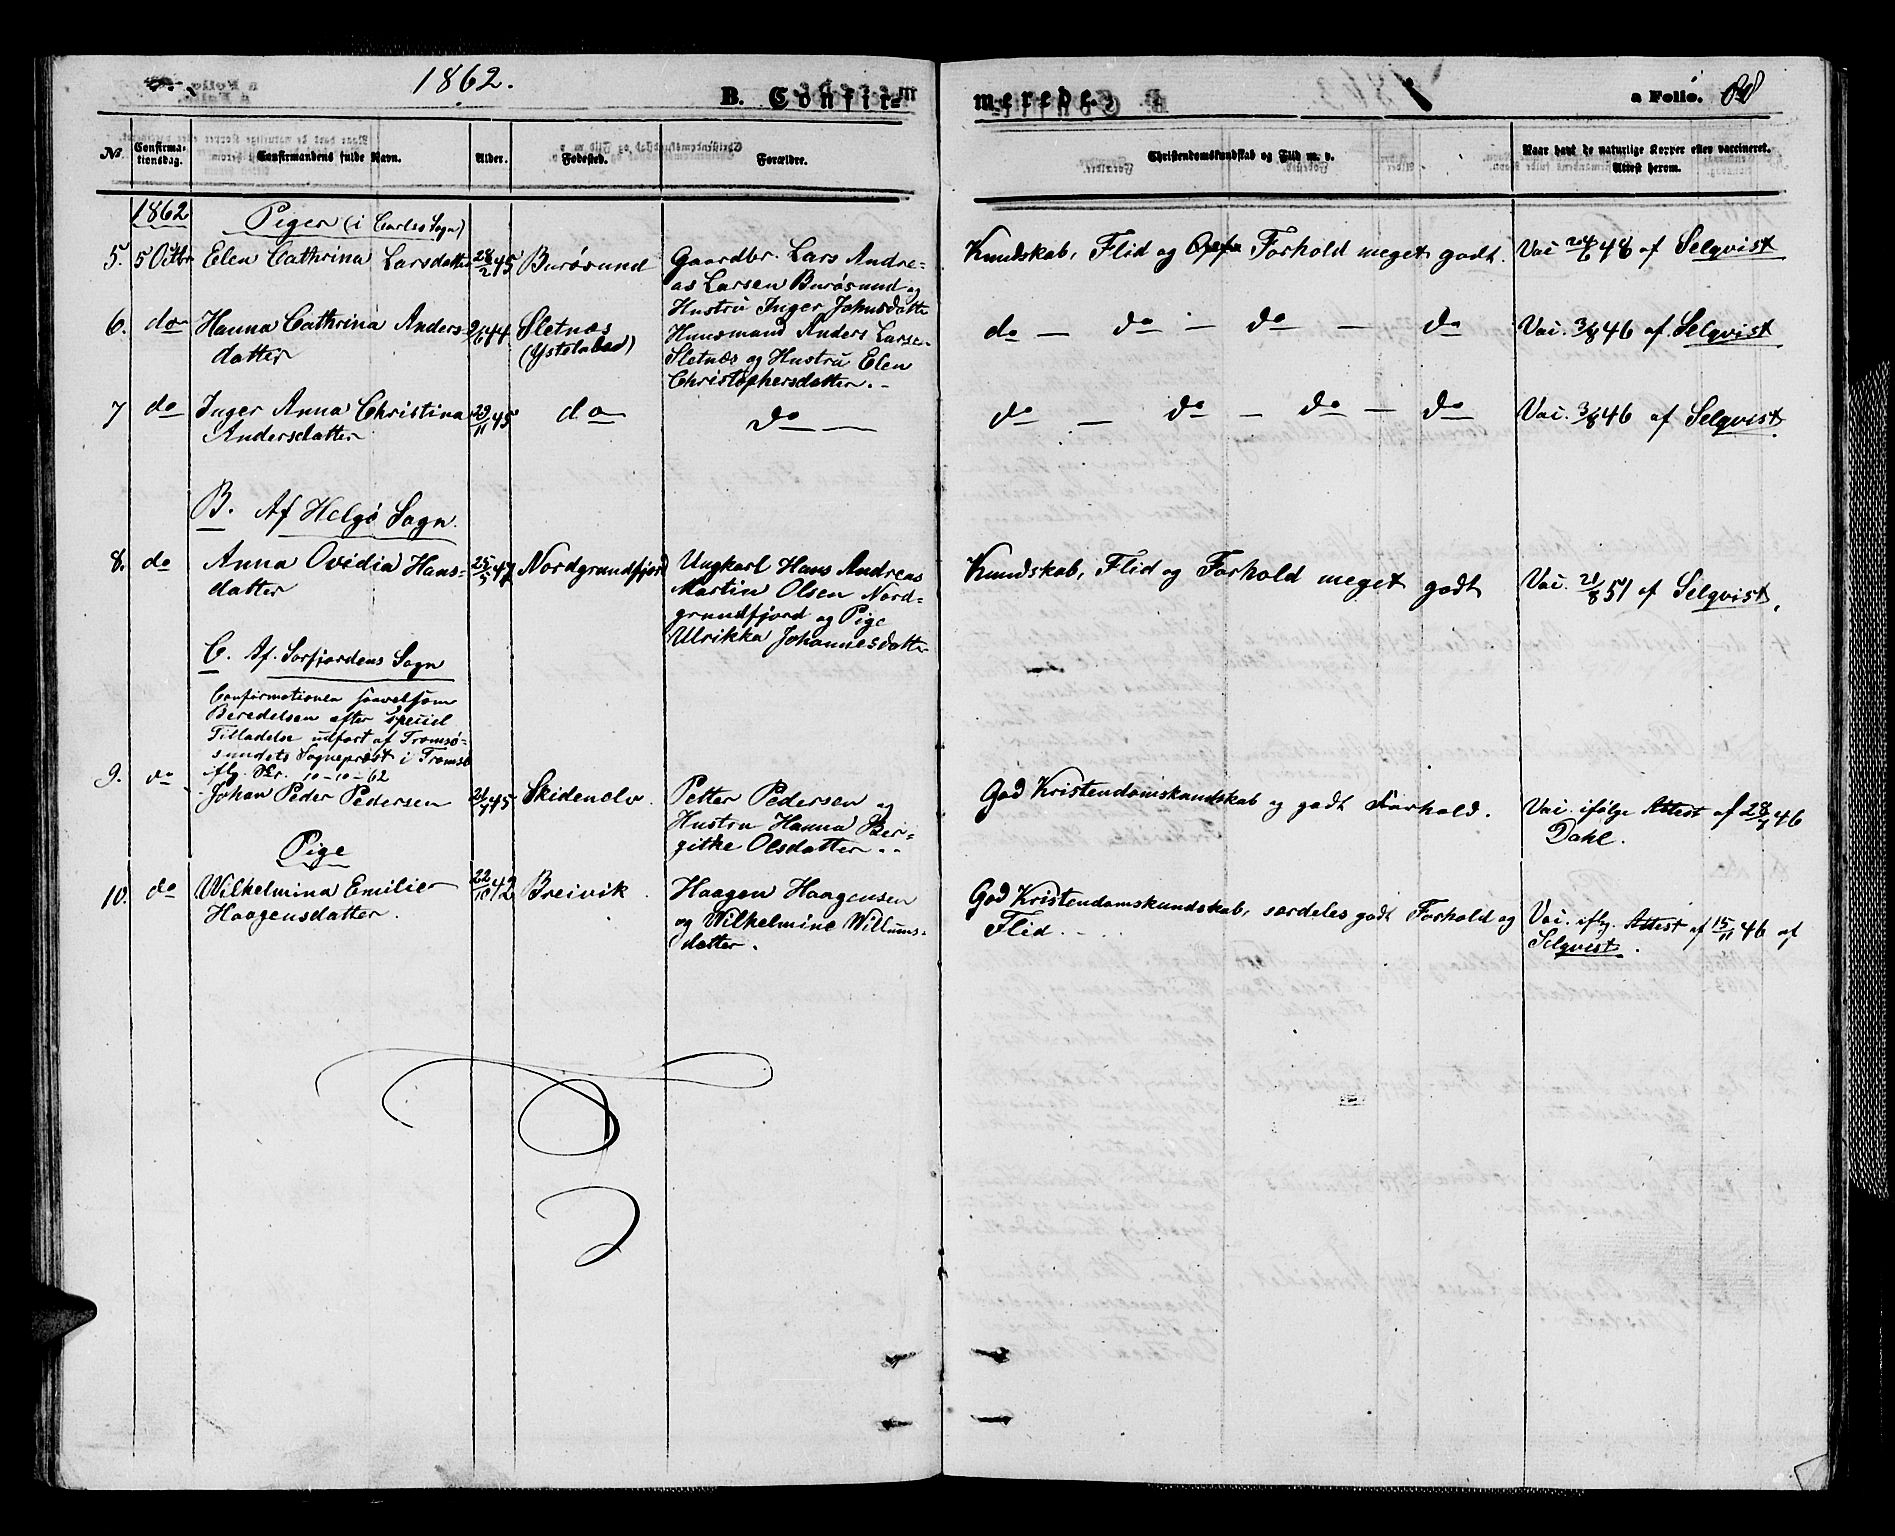 1862.
B. Confir=
merede.
a Folio. 68
No.
Confirma-
tionsdag.
Confirmandens fulde Navn.
Alder.
Fødested.
Forældre.
Christendomskundskab og Flid m. v.
Naar havt de naturlige Kopper eller vaccineret.
Attest herom.
1862
Piger (i Carlsø Sogn)
5. 5 Octbr Elen Cathrina Larsdatter 28/2 45 Burøsund Gaardbr. Lars Andre= Kundskab, Flid og Forhold meget godt. Vac 24/6 48 af Selqvist
as Larsen Burøsund og
Hustru Inger Johnsdatter
6. do Hanna Cathrina Anders- 44 Sletnæs Huusmand Anders Larsen do — do — do — do Vac. 3/8 46 af Selqvist
datter Sletnæs og Hustru Elen
Christophersdatter. -
7 do Inger Anna Christina 29/11 45 do do — do — do — do — do Vac. 3/8 46 af Selqvist.
Andersdatter
B. Af Helgø Sogn.
8. do Anna Ovidia Hans- 25/5 47 Nordgrundfjord Ungkarl Hans Andreas Kundskab, Flid og Forhold meget godt Vac. 21/8 51 af Selqvist.
datter Martin Olsen Nord=
grundfjord og Pige
Ulrikka Johannesdatter
C. Af. Sorfjordens Sogn
Confirmationen saavelsom
Beredelsen efter speciel
Tilladelse udført af Tromsø-
sundets Sognepræst i Tromsø
iflg. Skr. 10-10-62
9. do Johan Peder Pedersen 45 Skidenelv. Petter Pedersen og God Kristendomskundskab og godt Forhold. Vac. ifølge Attest af 28/7 46
Hustru Hanna Ber- Dahl.
githe Olsdatter. .
Pige
10. do Wilhelmina Emilie 22/10 42 Breivik. Haagen Haagensen God Kristendomskundskab, særdeles godt Forhold og Vac. iflg. Attest af 15/11 46 af
Haagensdatter. og Wilhelmine Willums- Flid. Selqvist.
datter.